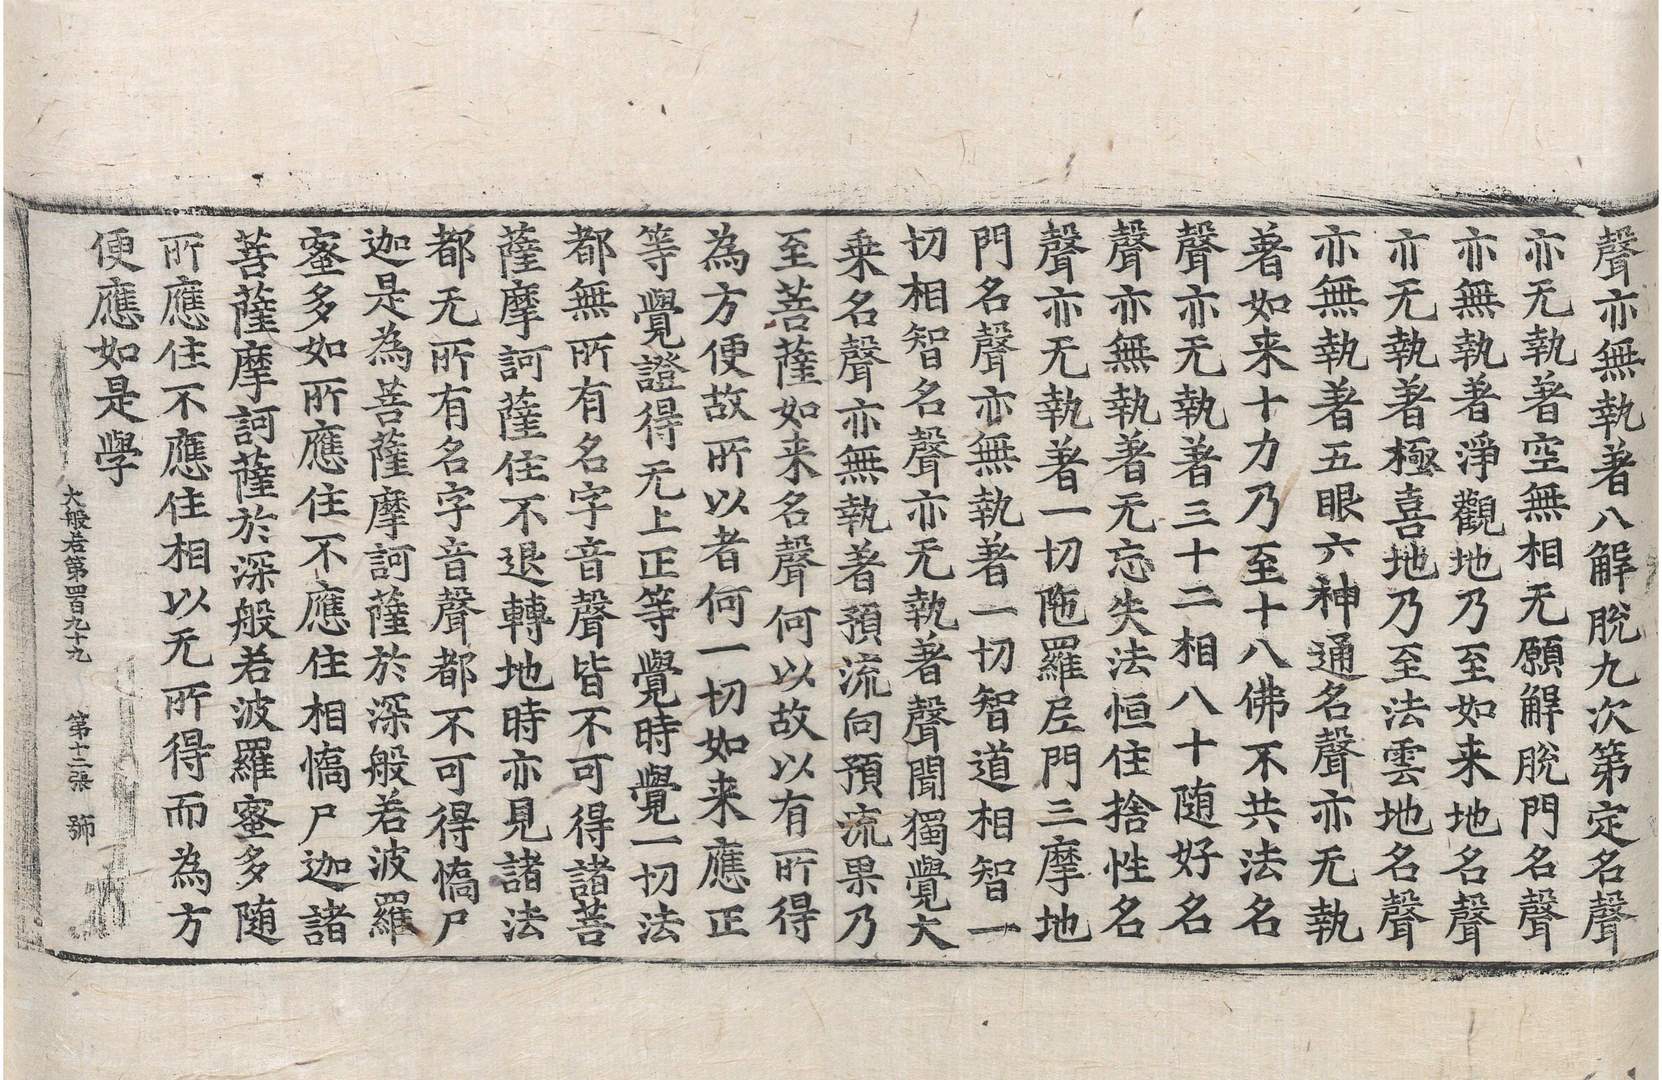 聲亦無執著八解脫九次第定名聲
亦无執著空無相无願解脫門名聲
亦無執著淨觀地乃至如来地名聲
亦无執著極喜地乃至法雲地名聲
亦無執著五眼六神通名聲亦无執
著如来十力乃至十八佛不共法名
聲亦无執著三十二相八十随好名
聲亦無執著无忘失法恒住捨性名
聲亦无執著一切陁羅尼門三摩地
門名聲亦無執著一切智道相智一
切相智名聲亦无執著聲聞獨覺大
乗名聲亦無執著預流向預流果乃
至菩薩如来名聲何以故以有所得
為方便故所以者何一切如来應正
等覺證得无上正等覺時覺一切法
都無所有名字音聲皆不可得諸菩
薩摩訶薩住不退轉地時亦見諸法
都无所有名字音聲都不可得憍尸
迦是為菩薩摩訶薩於深般若波羅
蜜多如所應住不應住相憍尸迦諸
菩薩摩訶薩於深般若波羅蜜多随
所應住不應住相以无所得而為方
便應如是學
大般若第四百九十九 第十二張 号帀